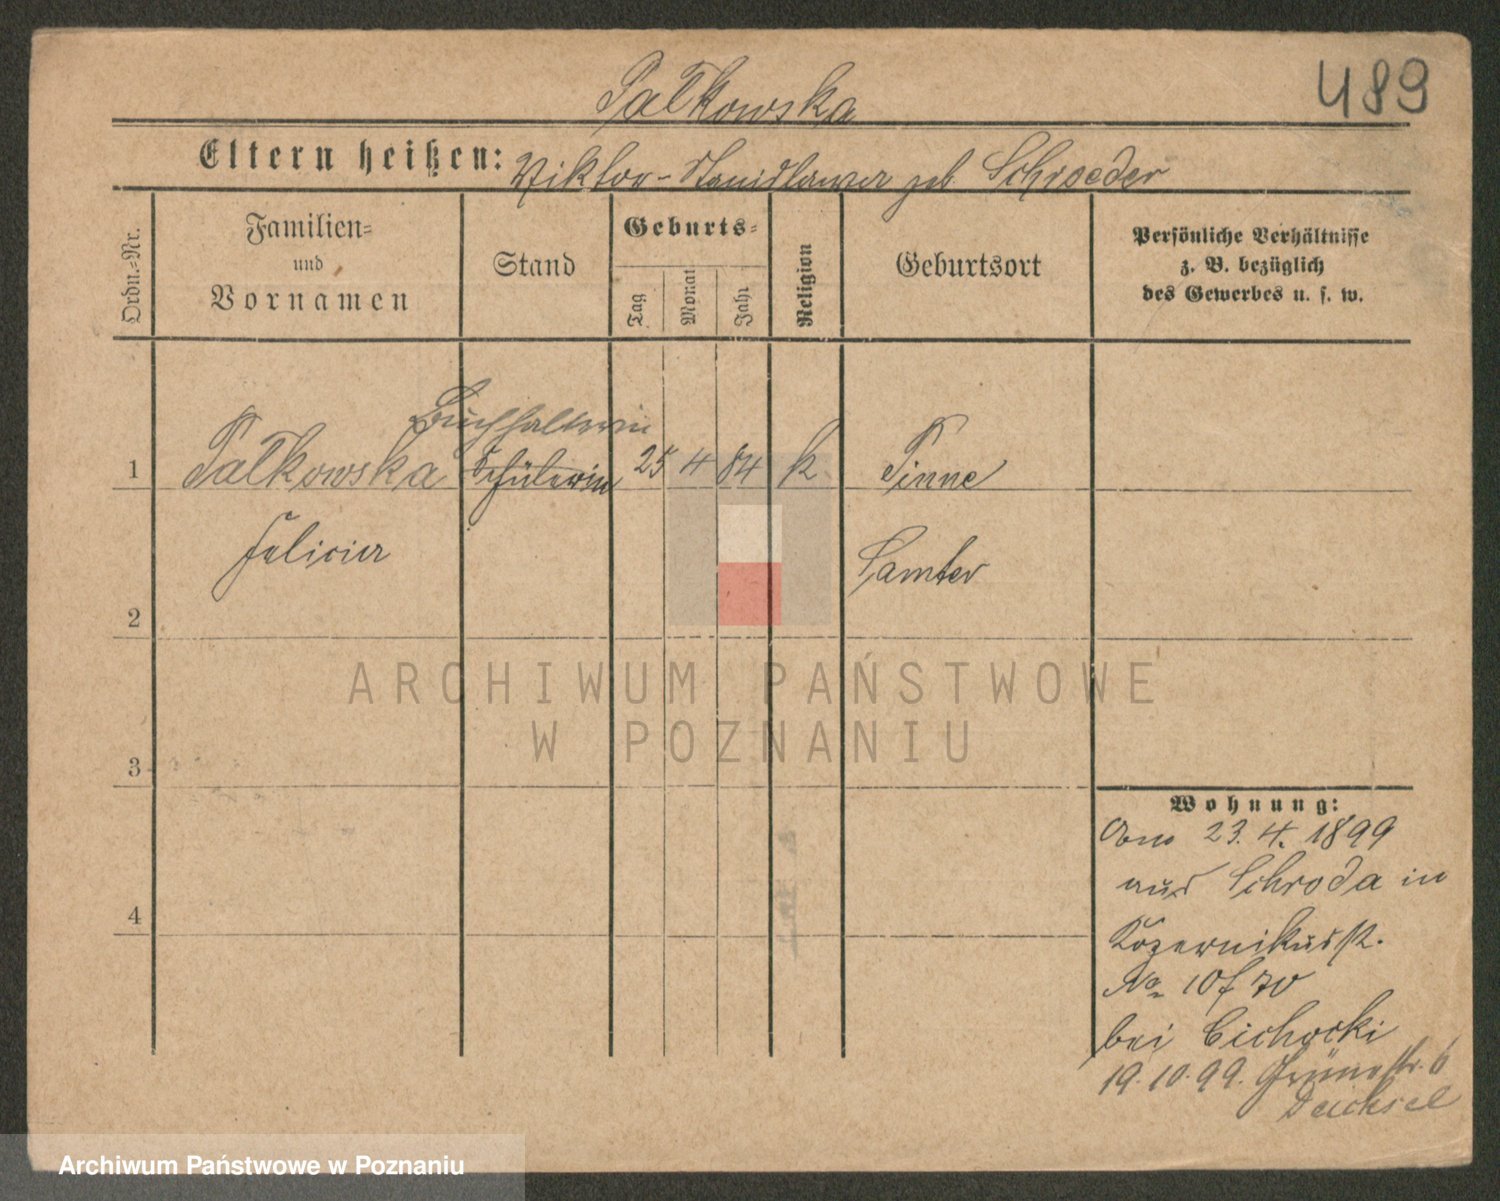 489
Palkowska
Eltern heißen: Viktor - Stanislawa geb. Schroeder
Ordn.-Nr.
Familien-
und
Vornamen
Stand
Geburts-
Tag
Monat
Jahr
Religion
Geburtsort
Persönliche Verhältnisse
z. B. bezüglich
des Gewerbes u. s. w.
Buchhalterin
1 Palkowska Schülerin 25 4 84 k Pinne
Felicia
Samter
2
3
4
Wohnung:
23. 4. 1899
aus Schroda in
No 10
bei Cichocki
19.10.99. Grünestr. 6
Deichsel
ARCHIWUM PAŃSTWOWE
W POZNANIU
Archiwum Państwowe w Poznaniu